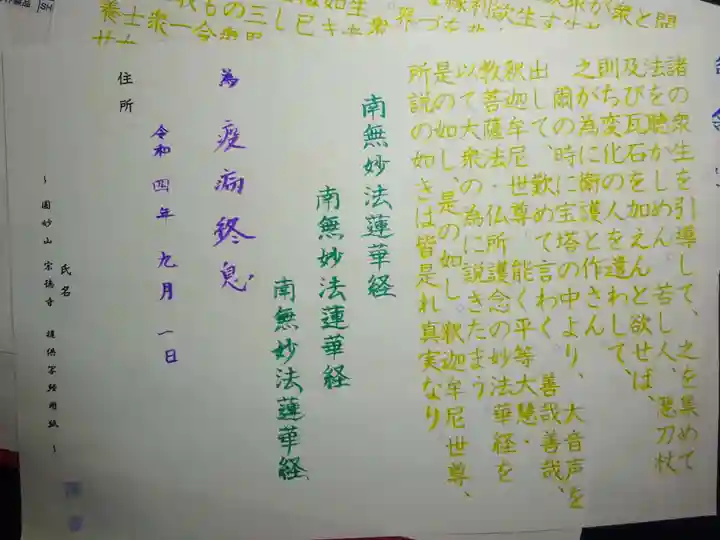 諸の衆生を引導して、之を集めて
法を聴かしめん
及び瓦石を加えんと欲せば、
則ち変化の人を遣わして、
之が為に衛護と作さん
爾の時に宝塔の中より、大音声を
出して、歎めて言わく、善哉善哉、
釈迦牟尼世尊、能く平等大慧・
教菩薩法・仏所護念の妙法華経を
以て大衆の為に説きたまう
是の如し、是の如し、釈迦牟尼世尊、
所説の如きは皆是れ真実なり
南無妙法蓮華経
南無妙法蓮華経
南無妙法蓮華経
為 疫病終息
令和四年 九月 一日
住所
氏名
～ 圓妙山 宗徳寺 提供写経用紙 ～